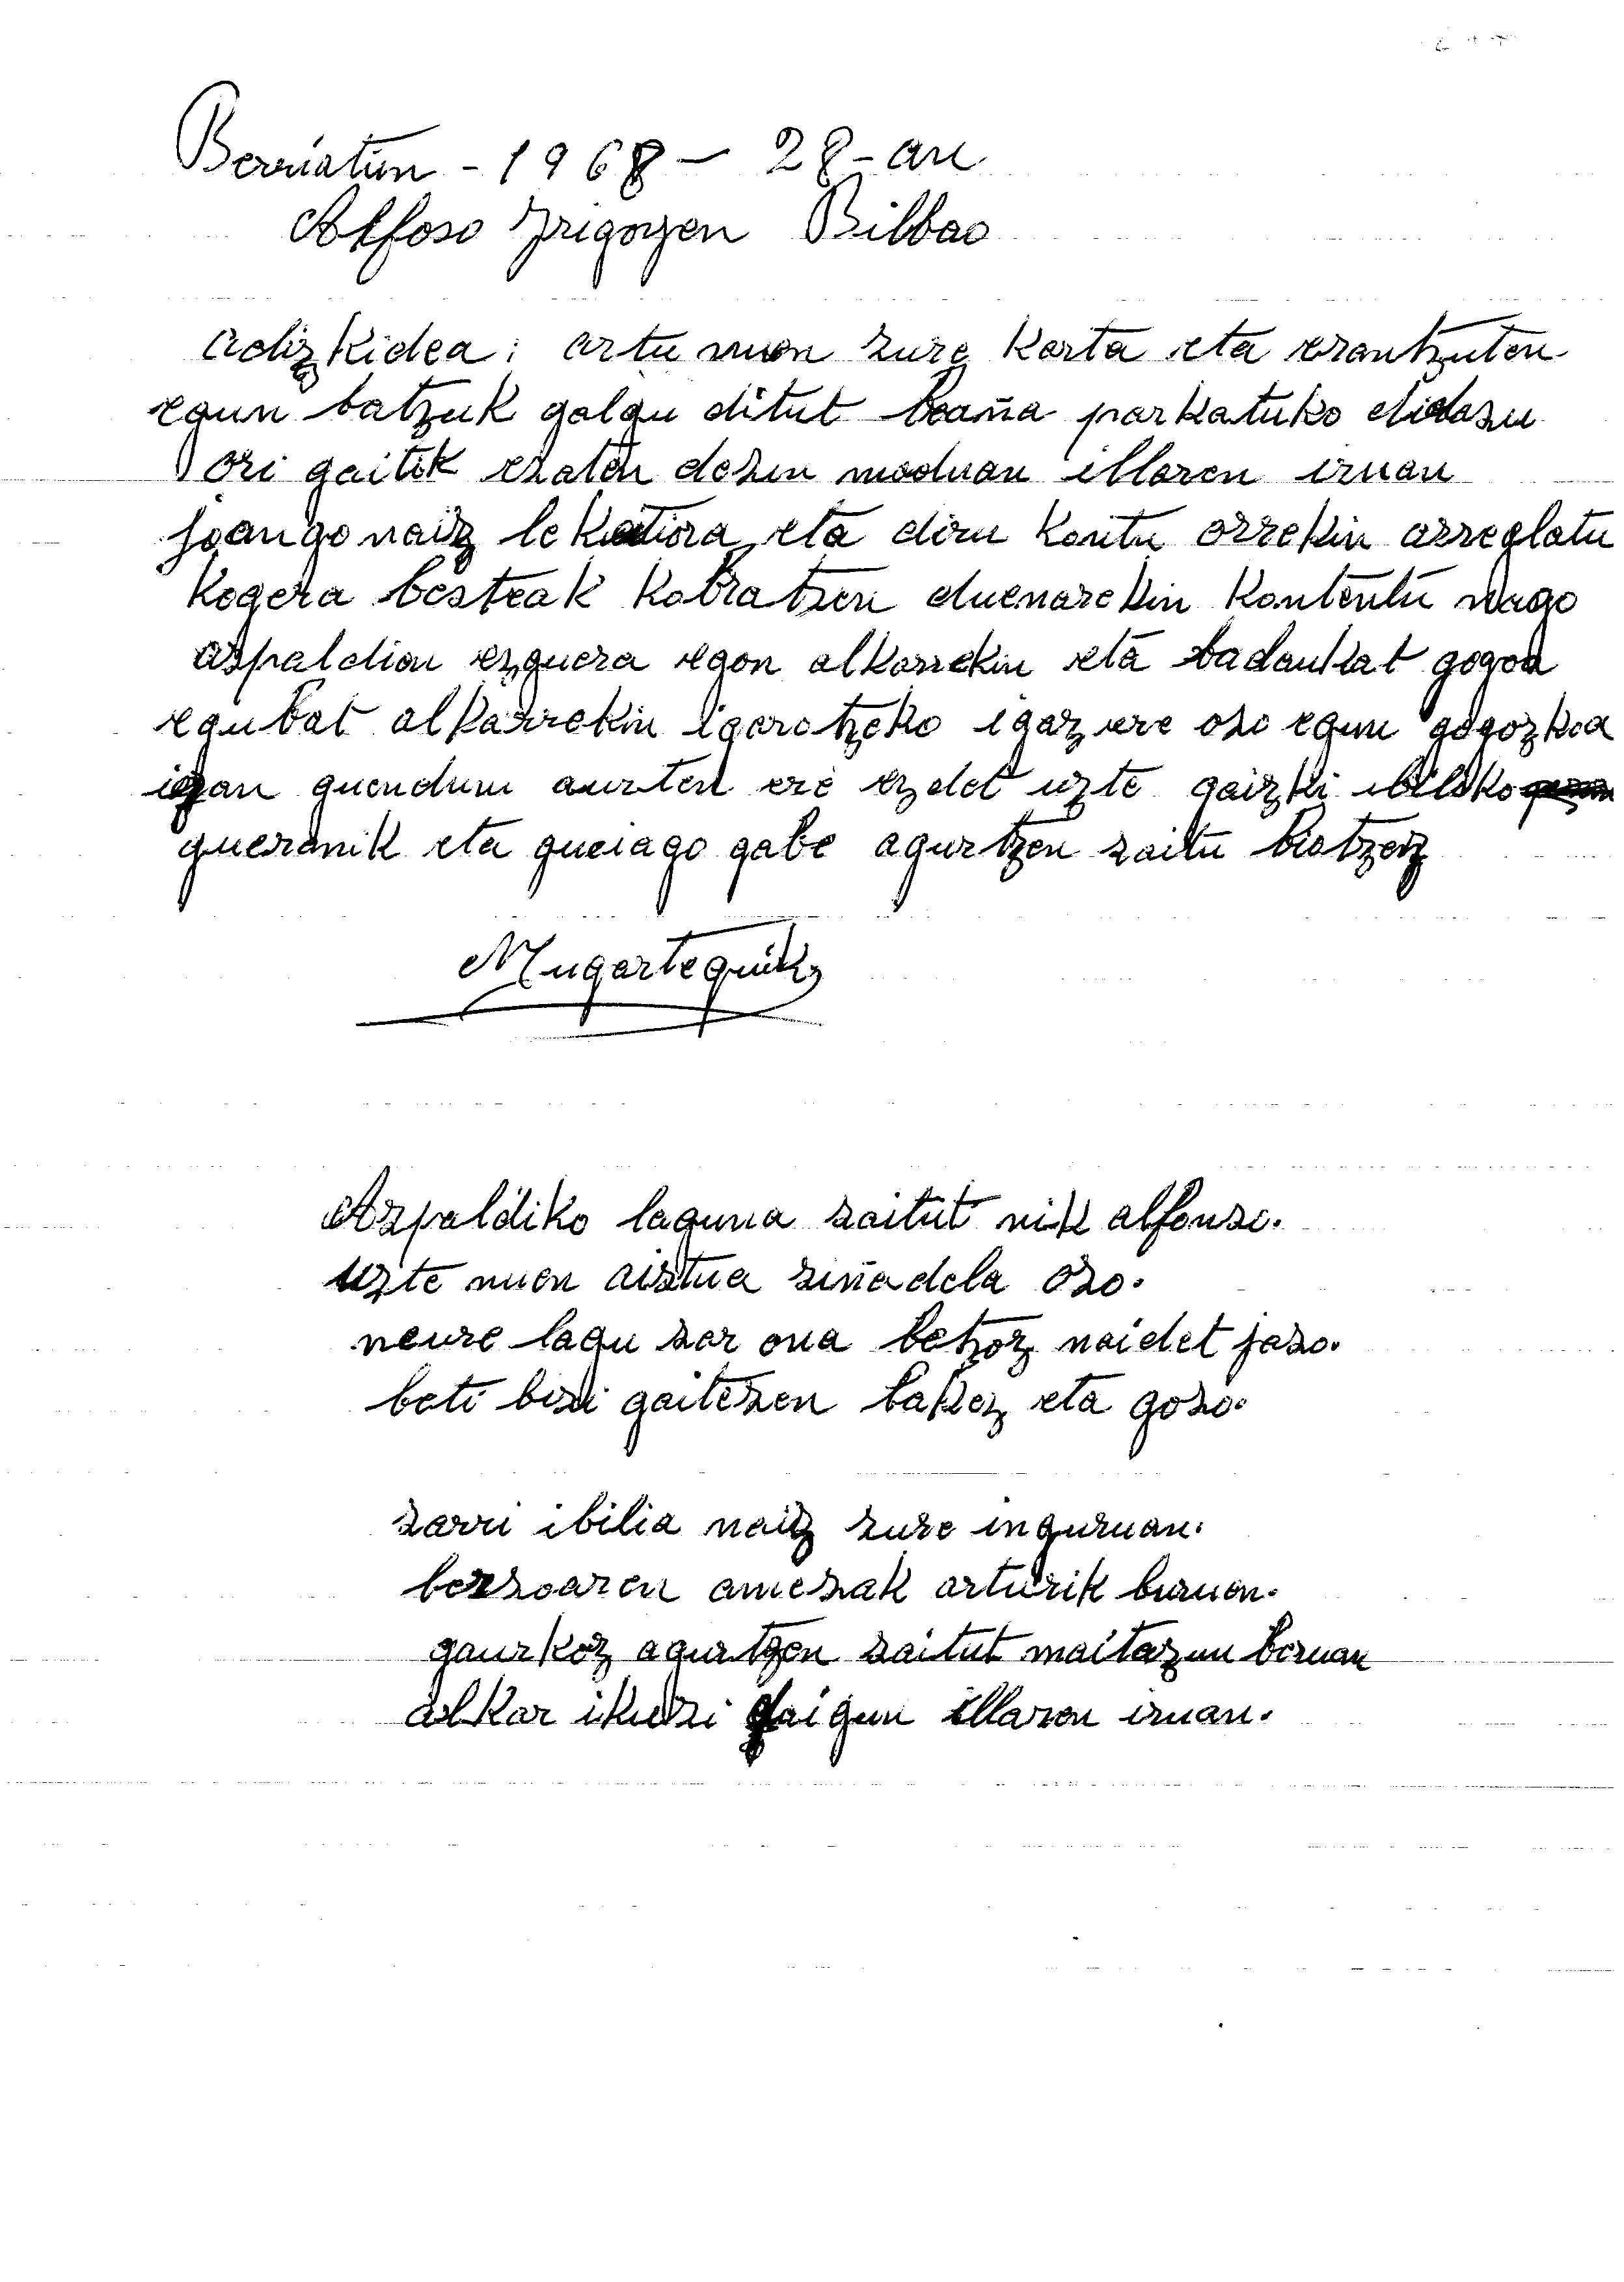 Berriatun - 1968 - 28-an
Alfoso Yrigoyen Bilbao
adizkidea: artu nuen zure karta eta erantzuten
egun batzuk galgu ditut baaña parkatuko didazu
ori gaitik ezaten dezun moduan illaren iruan
joango naiz lekeitiora eta diru kontu orrekin arreglatu
kogera besteak kobratzen duenarekin kontentu nago
aspaldion ezguera egon alkarrekin eta badaukat gogoa
egubat alkarrekin igarotzeko igaz ere oso egun gogozkoa
izan guendun aurten ere ezdet uzte gaizki ibilko
gueranik eta gueiago gabe agurtzen zaitu biotzez
Mugarteguik
Azpaldiko laguna zaitut nik alfonso.
uzte nuen aiztua ziñadela oso.
neure lagu zar ona betzoz naidet jaso.
beti bizi gaitezen bakez eta gozo.
zarri ibilia naiz zure inguruan.
berzoaren amezak arturik buruan.
gaurkoz agurtzen zaitut maitazun beruan
alkar ikuzi daigun illaren iruan.